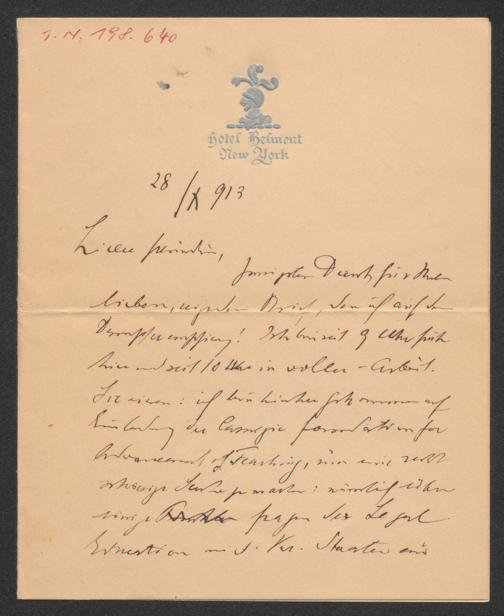 I. N. 198.640
Hotel Belmont
New York
28/X 913
Liebe Freundin,
Innigsten Dank für Ihren
lieben, Brief, den ich auf dem
Dampfer empfing! Ich bin seit 9 Uhr früh
hier und seit 10 Uhr in voller Arbeit.
Sie wissen: ich bin hierher gekommen auf
Einladung der Carnegie foundation for
Advancement of Teaching, um eine recht
schwierige Sache zu machen: nämlich über
einige fragen der Legal
Education in d. Ver. Staaten ein